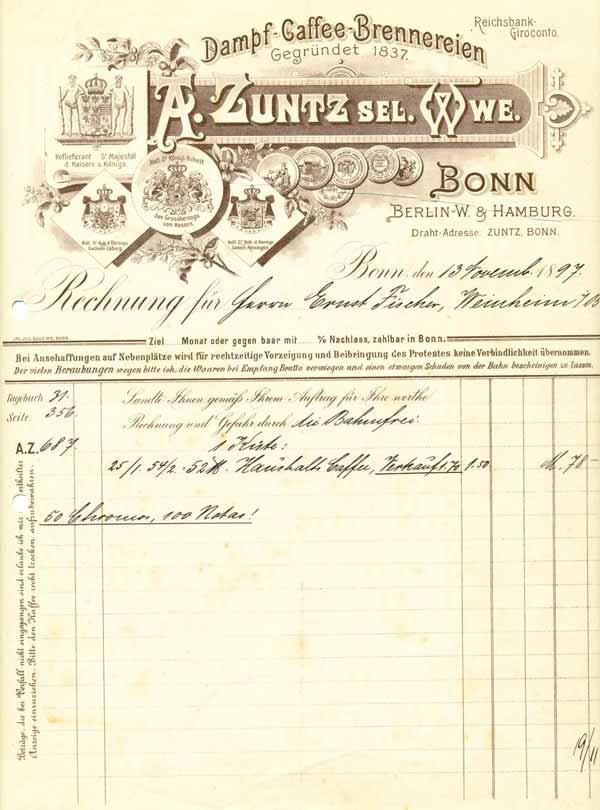 Dampf-Caffee-Brennereien
Gegründet 1837.
Reichsbank-
Giroconto.
A. ZUNTZ SEL. WWE.
Hoflieferant Sr Majestät
d. Kaisers u. Königs.
Hofl. Sr Königl. Hoheit
des Grossherzogs
von Hessen.
Hofl. Sr Hoh. d. Herzogs
Sachsen-Coburg.
Hofl. Sr Hoh. d. Herzogs
Sachsen-Meiningen.
BONN
BERLIN-W. & HAMBURG.
Draht-Adresse: ZUNTZ, BONN.
Bonn, den 13 Novemb. 1897.
Rechnung für Herrn Ernst Fischer, Weinheim i/B
Ziel Monat oder gegen baar mit % Nachlass, zahlbar in Bonn.
Bei Anschaffungen auf Nebenplätze wird für rechtzeitige Vorzeigung und Beibringung des Protestes keine Verbindlichkeit übernommen.
Der vielen Beraubungen wegen bitte ich, die Waaren bei Empfang Brutto verwiegen und einen etwaigen Schaden von der Bahn bescheinigen zu lassen.
Tagebuch 31.
Seite. 356.
Sandte Ihnen gemäß Ihrem Auftrag für Ihre werthe
Rechnung und Gefahr durch die Bahn frei
A.Z. 687.
1 Kiste:
25/1. 54/2 - 52 ℔. Haushalts Caffee, Verkauf 1.70 1.50 M. 78 -
50 Chromos, 100 Notas!
Beträge, die bei Verfall nicht eingegangen sind erlaube ich mir
Anzeige einzuziehen. Bitte den Kaffee recht trocken aufzubewahren.
19/11